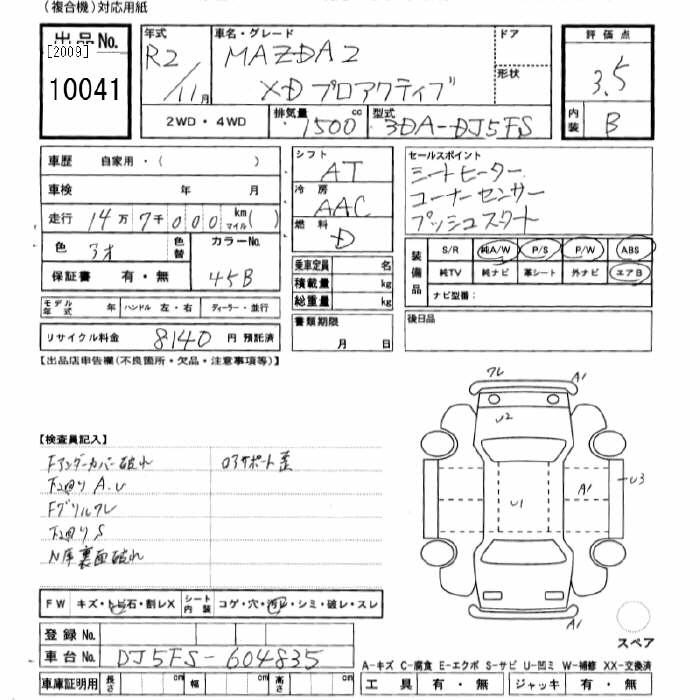 (複合機)対応用紙
出品No.
[2009]
10041
年式
R2/11月
車名・グレード
MAZDA2
XD プロアクティブ
ドア
形状
評価点
3.5
内装
B
2WD・4WD
排気量
1500cc
型式
3DA-DJ5FS
車歴 自家用・( )
車検 年 月
走行 14万7千000km マイル( )
色 アオ
色替
カラーNo.
45B
保証書 有・無
モデル年式 年 ハンドル 左・右 ディーラー・並行
リサイクル料金 8140円 預託済
シフト
AT
冷房
AAC
燃料
D
乗車定員 名
積載量 kg
総重量 kg
書類期限
月 日
セールスポイント
シートヒーター
コーナーセンサー
プッシュスタート
装備品
S/R 純A/W P/S P/W ABS
純TV 純ナビ 革シート 外ナビ エアB
ナビ型番:
後日品
【出品店申告欄(不良箇所・欠品・注意事項等)】
【検査員記入】
Fアンダーカバー破れ
下回りA.U
Fグリルワレ
下回りS
N席裏面破れ
ロアサポート歪
ワレ
A1
U2
U1
A1
U3
A1
スペア
FW キズ・トビ石・割レX シート内装 コゲ・穴・汚レ・シミ・破レ・スレ
登録No.
車台No. DJ5FS-604835
車庫証明用 長さ cm 幅 cm 高さ cm
A-キズ C-腐食 E-エクボ S-サビ U-凹ミ W-補修 XX-交換済
工具 有・無 ジャッキ 有・無